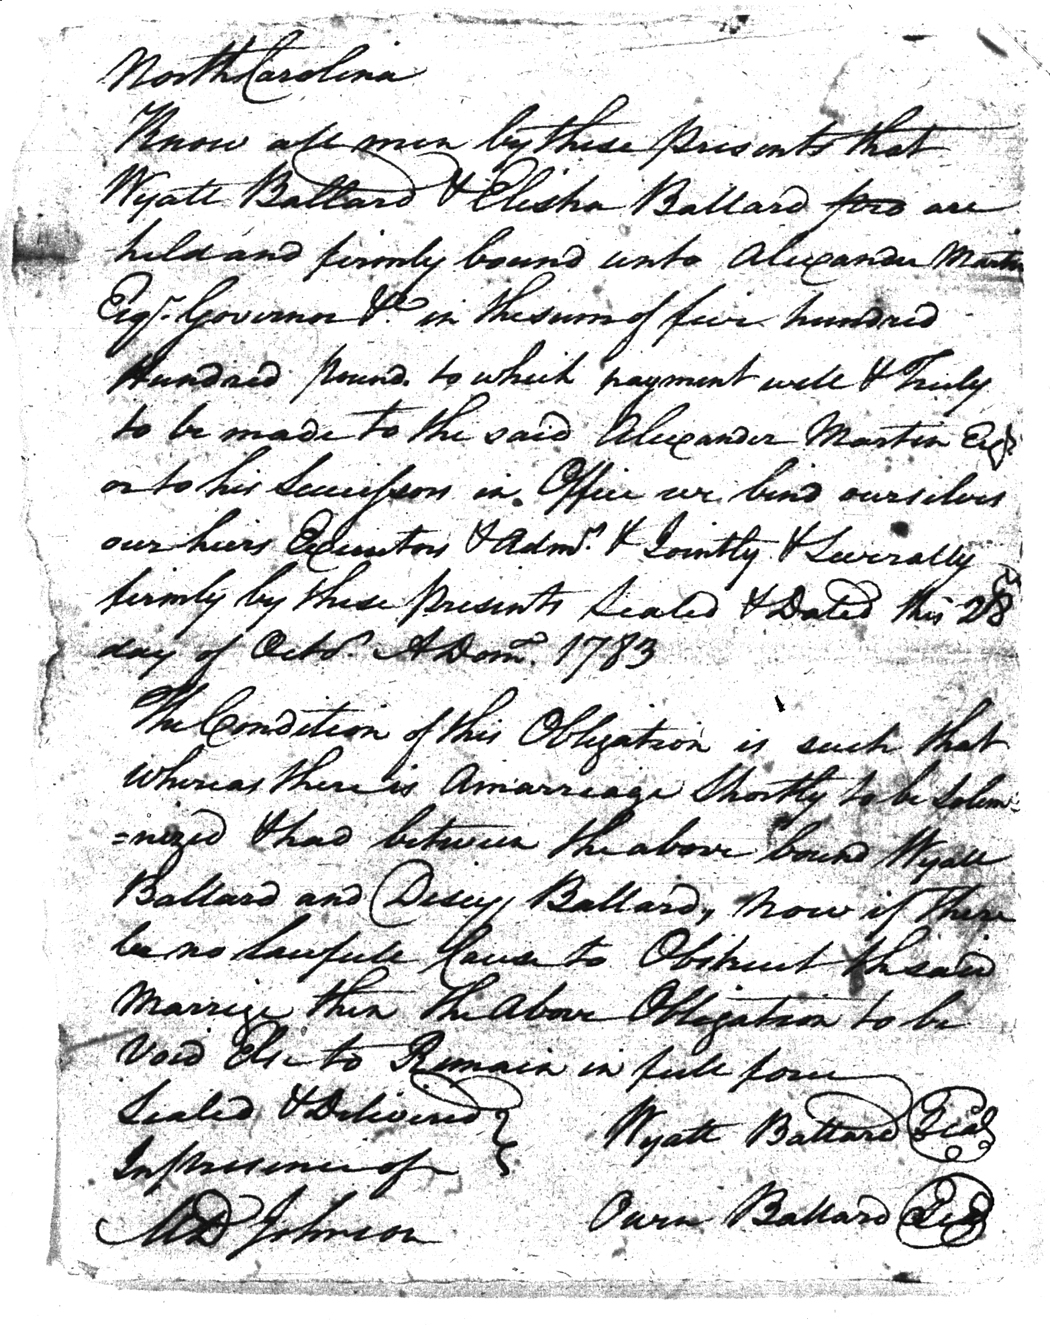 North Carolina
Know all men by these presents that
Wyatt Ballard & Elisha Ballard are
held and firmly bound unto Alexander Martin
Esqr. Governor &c in the sum of five hundred
Hundred pound. to which payment well & Truly
to be made to the said Alexander Martin Esqr
or to his Successors in Office we bind ourselves
our heirs Executors & Admrs. & Jointly & Severally
firmly by these presents Sealed & Dated this 28
day of Octor. A Dom. 1783
The Condition of this Obligation is such that
Whereas there is Amarreage Shortly to be Solem=
=nized & had between the above bound Wyatt
Ballard and Desey Ballard, Now if there
be no Lawfull Cause to Obstruct the said
Marrige then the Above Obligation to be
Void Else to Remain in full force
Sealed & Delivered
In presence of
Wyatt Ballard Seal
Owen Ballard Seal
Johnson